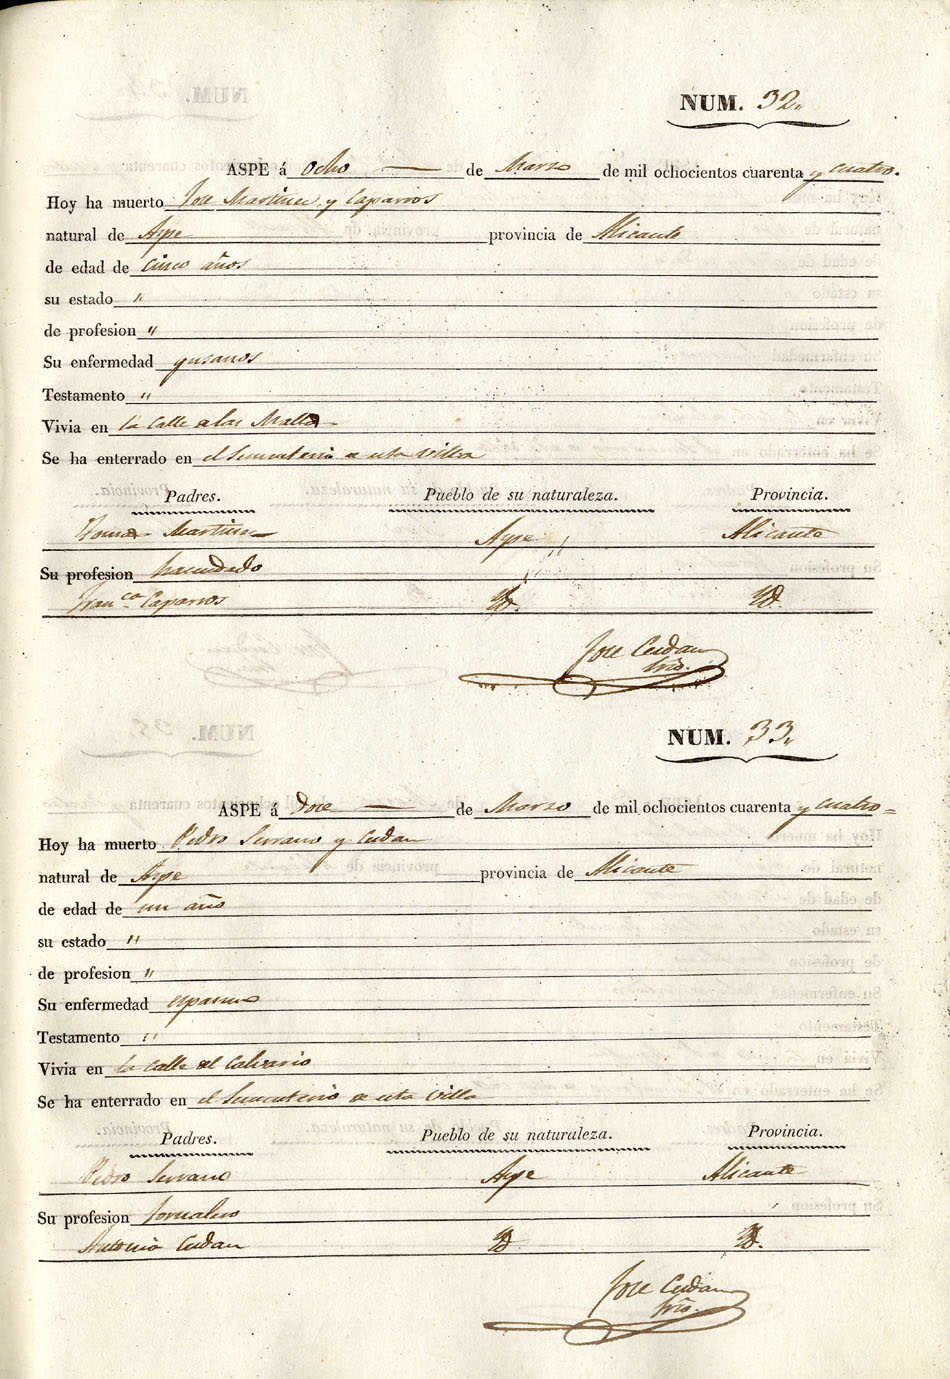 NUM. 32,,
ASPE á Ocho — de Marzo de mil ochocientos cuarenta y cuatro.
Hoy ha muerto Jose Martinez y Caparros
natural de Aspe provincia de Alicante
de edad de cinco años
su estado "
de profesion "
Su enfermedad gusanos
Testamento "
Vivia en la Calle
Se ha enterrado en el Sementerio de esta Villa
Padres. Pueblo de su naturaleza. Provincia.
Tomas Martinez Aspe Alicante
Su profesion hacendado
Fran.ca Caparros Yd. Yd.
Jose Cerdan
Srio.
NUM. 33,,
ASPE á Doce — de Marzo de mil ochocientos cuarenta y cuatro=
Hoy ha muerto Pedro Serrano y Cerdan
natural de Aspe provincia de Alicante
de edad de un año
su estado "
de profesion "
Su enfermedad espasmo
Testamento "
Vivia en la Calle del Calvario
Se ha enterrado en el Sementerio de esta Villa
Padres. Pueblo de su naturaleza. Provincia.
Pedro Serrano Aspe Alicante
Su profesion Jornalero
Antonia Cerdan Yd. Yd.
Jose Cerdan
Srio.